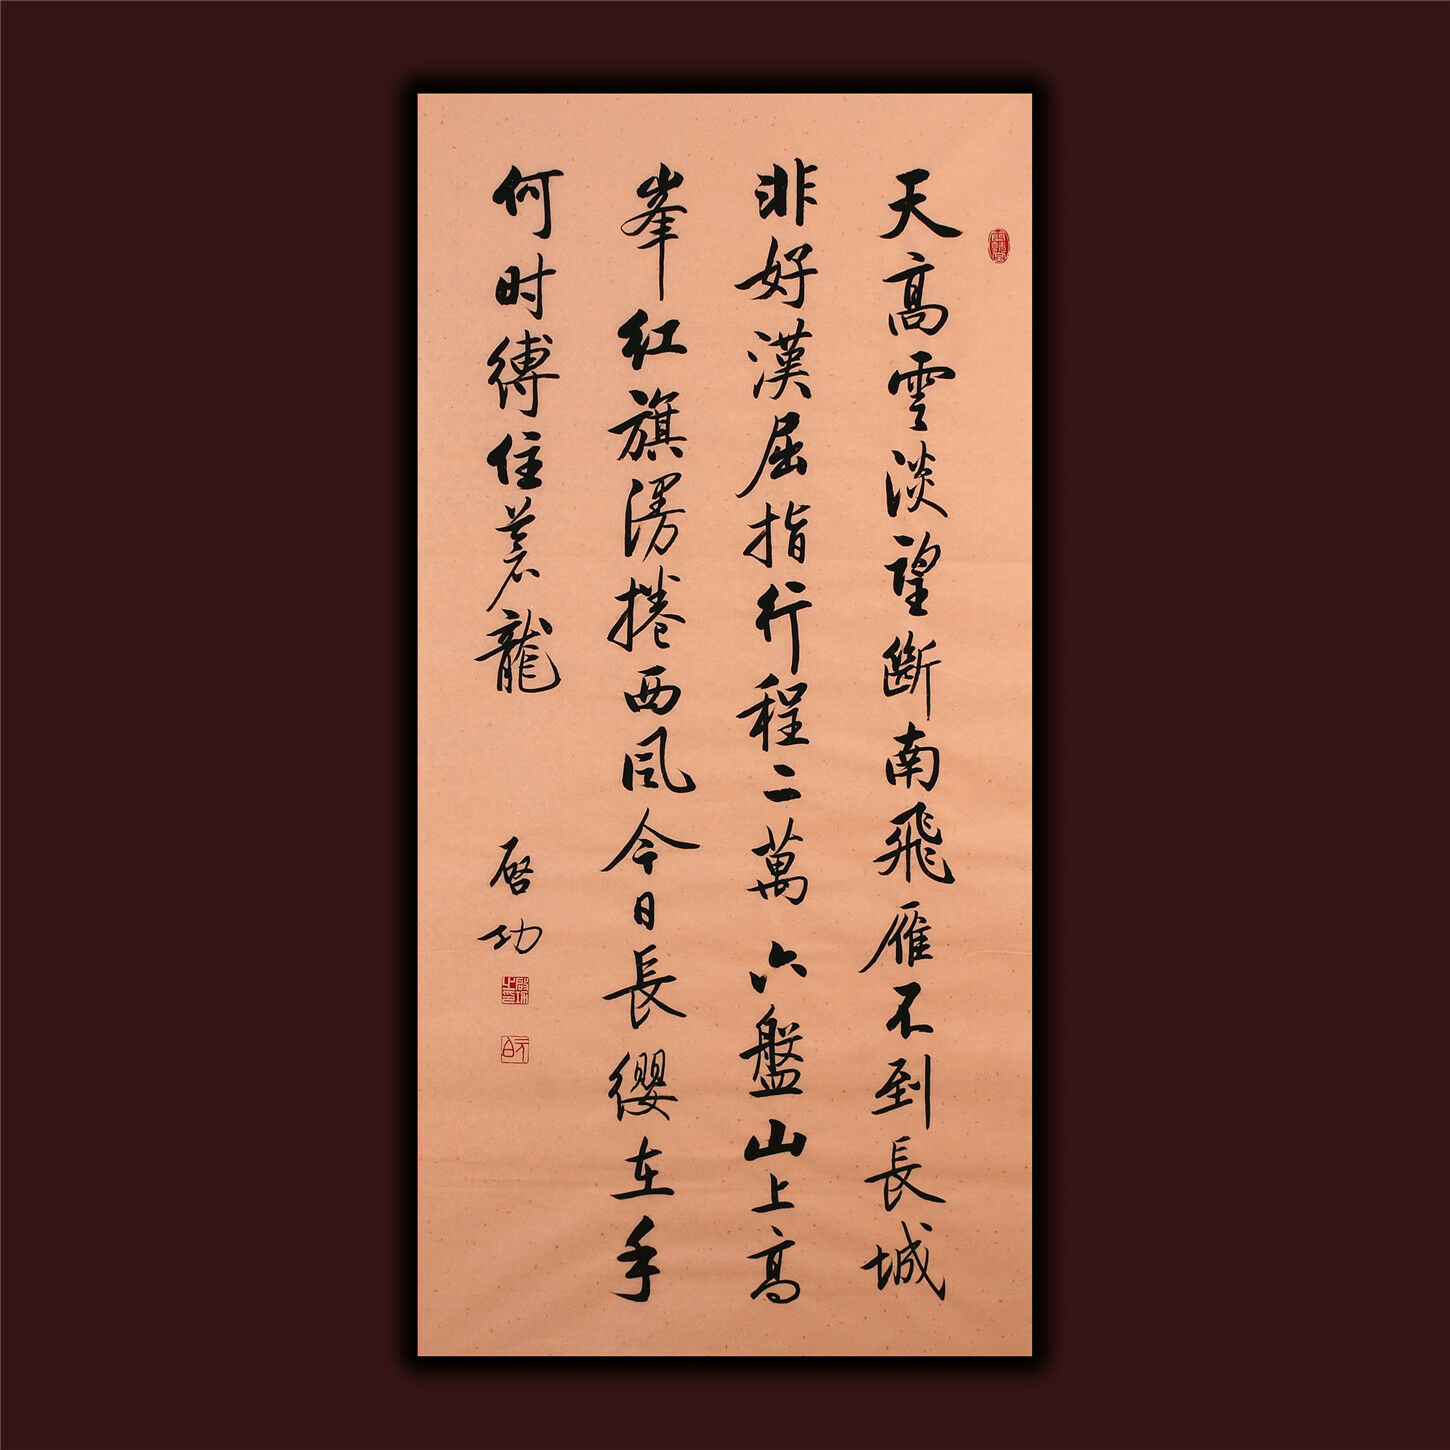 天高雲淡望斷南飛雁不到長城
非好漢屈指行程二萬六盤山上高
峯红旗漫捲西风今日長纓在手
何时缚住蒼龍
啓功